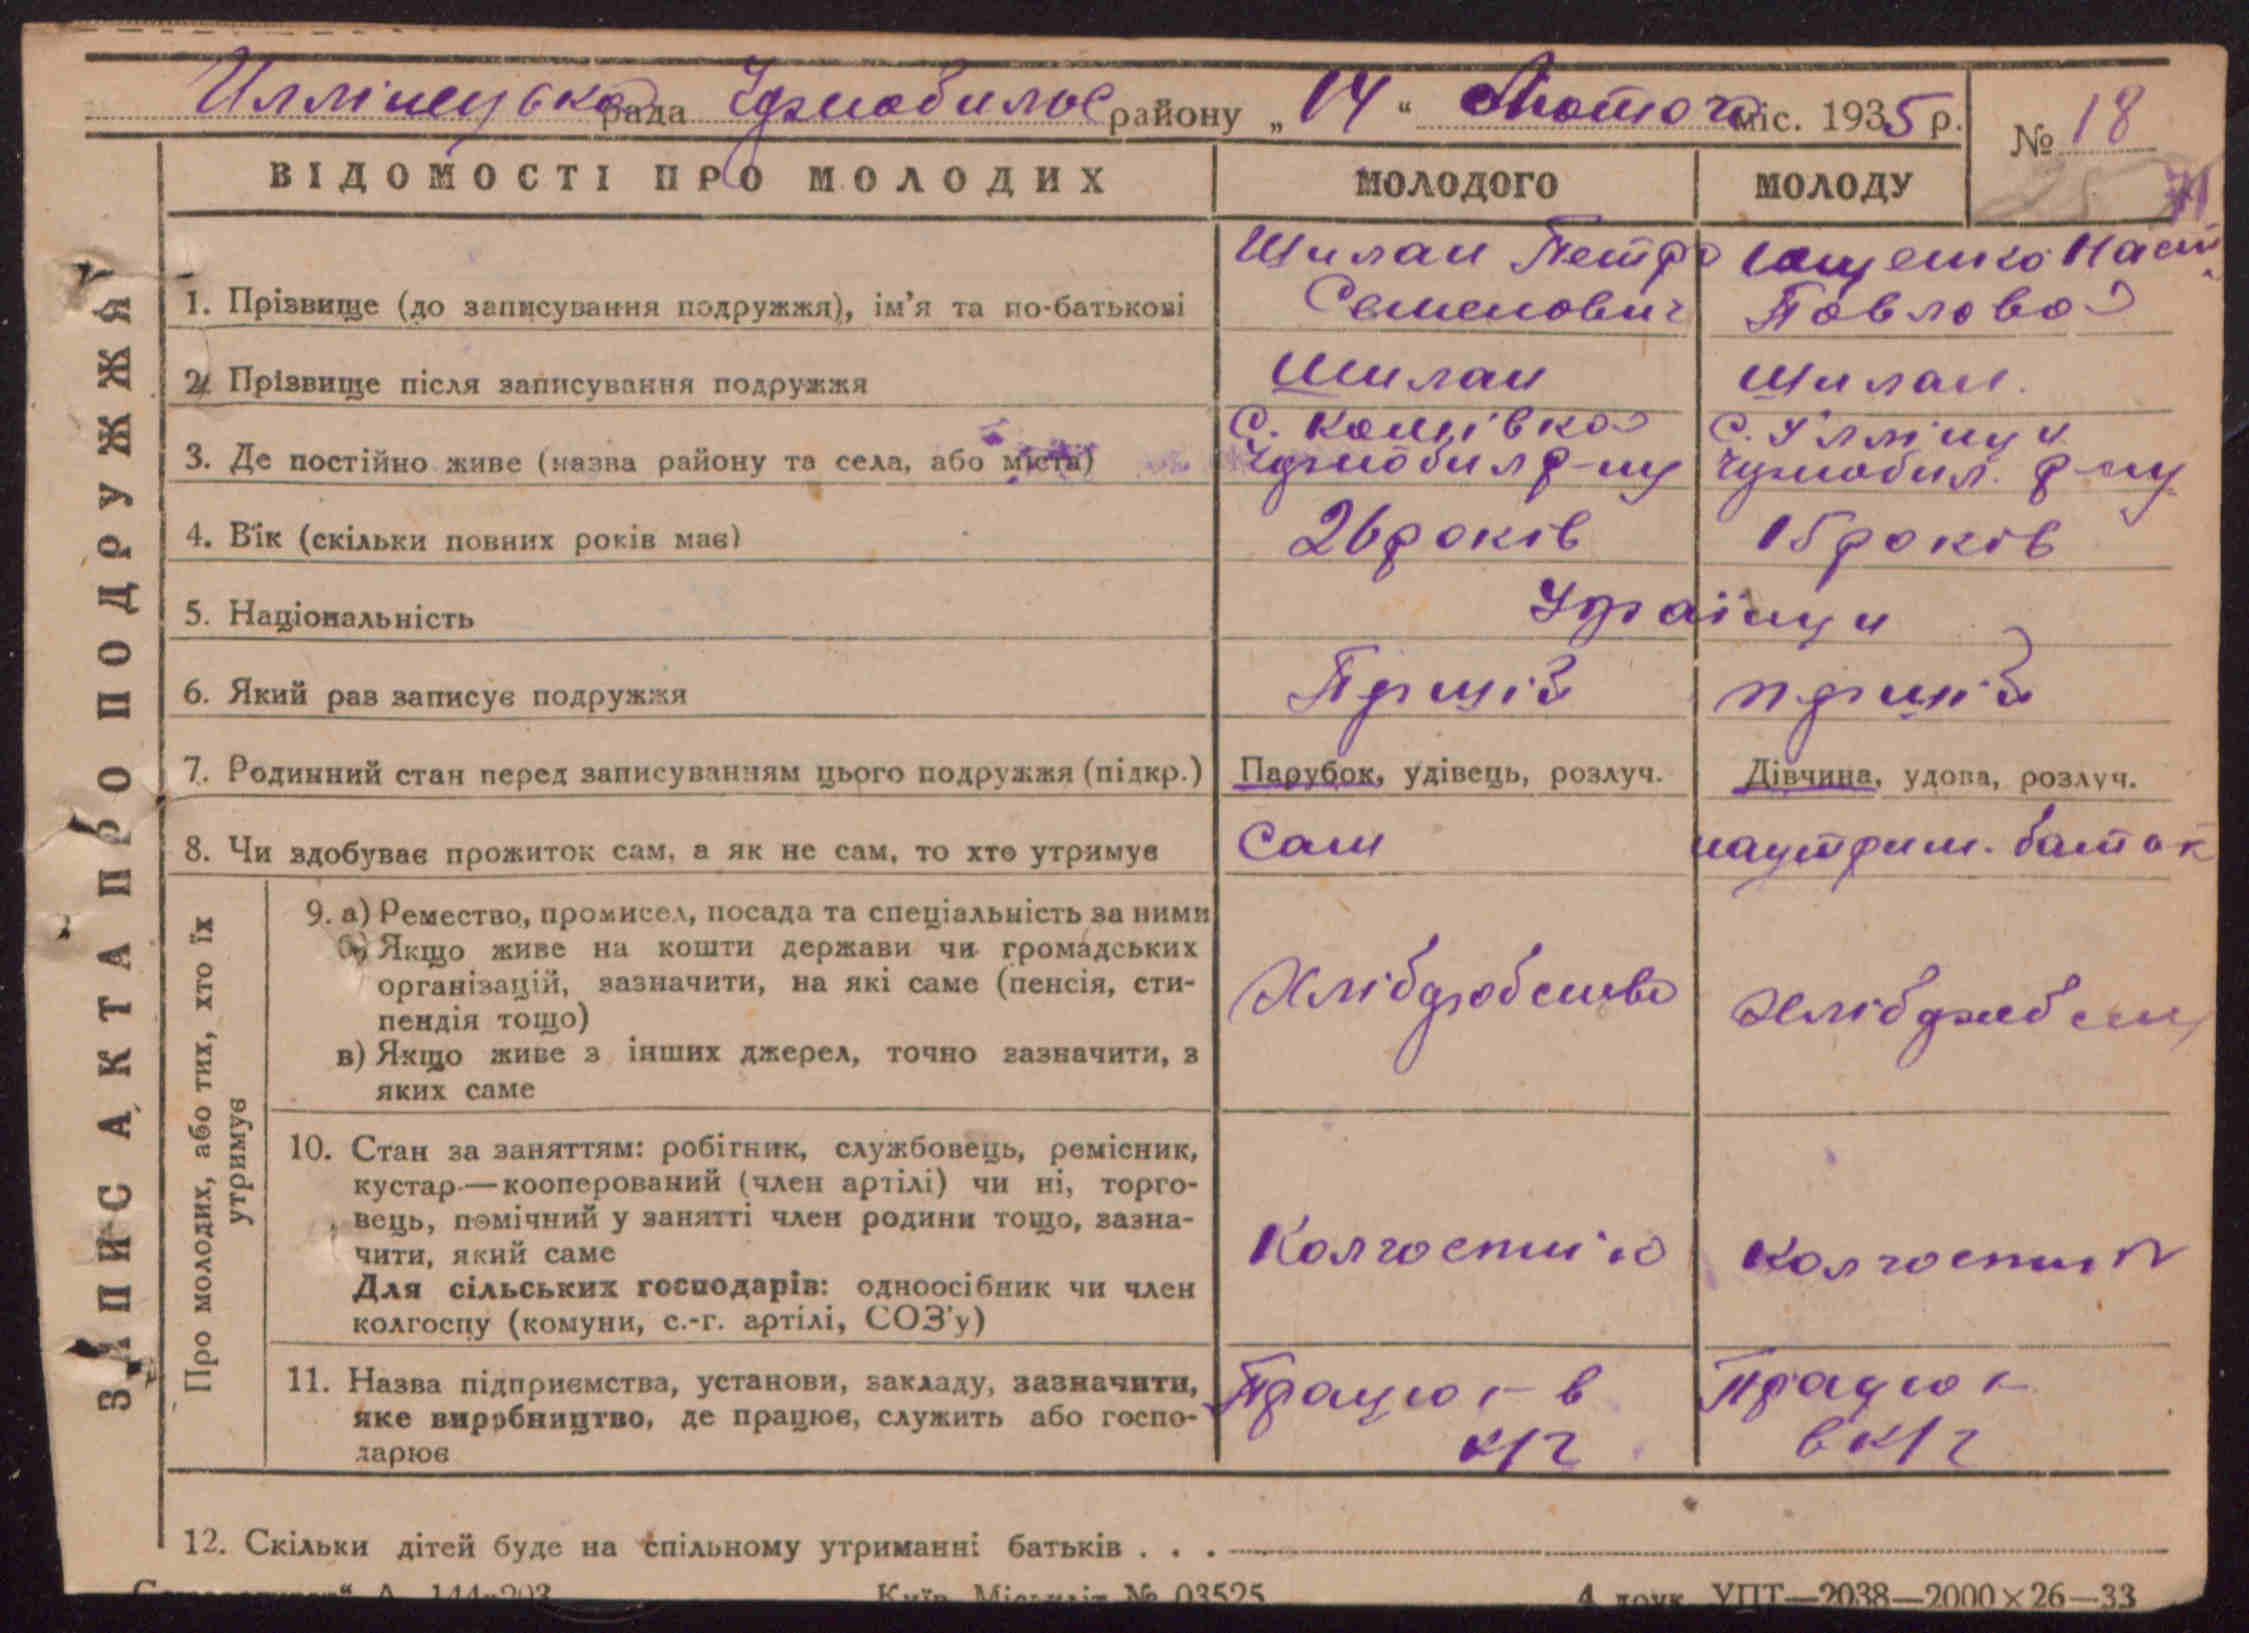 Иллінецька рада Чорнобильс району „ 14 “ Лютого міс. 1935 р.
№ 18
ВІДОМОСТІ ПРО МОЛОДИХ МОЛОДОГО МОЛОДУ
ЗАПИС АКТА ПРО ПОДРУЖЖЯ
1. Прізвище (до записування подружжя), ім’я та по-батькові
Шилан Петро
Семенович
Ющенко Наст
Павлова
2. Прізвище після записування подружжя Шилан Шилан.
3. Де постійно живе (назва району та села, або міста)
Чорнобил р-ну
с. Іллінци
Чорнобил. р-ну
4. Вік (скільки повних років має) 26 років 15 років
5. Національність Українци
6. Який раз записує подружжя Перший перший
7. Родинний стан перед записуванням цього подружжя (підкр.) Парубок, удівець, розлуч. Дівчина, удова, розлуч.
8. Чи здобуває прожиток сам, а як не сам, то хто утримує Сам на утрим. батьк
Про молодих, або тих, хто їх
утримує
9. а) Ремество, промисел, посада та спеціальність за ними
б) Якщо живе на кошти держави чи громадських
організацій, зазначити, на які саме (пенсія, сти-
пендія тощо)
в) Якщо живе з інших джерел, точно зазначити, з
яких саме
Хліборобство
10. Стан за заняттям: робітник, службовець, ремісник,
кустар—кооперований (член артілі) чи ні, торго-
вець, помічний у занятті член родини тощо, зазна-
чити, який саме
Для сільських господарів: одноосібник чи член
колгоспу (комуни, с.-г. артілі, СОЗ’у)
11. Назва підприємства, установи, закладу, зазначити,
яке виробництво, де працює, служить або госпо-
дарює
Працює в
к/г
Працює
в к/г
12. Скільки дітей буде на спільному утриманні батьків . . .
А. 144-203 Київ. Міськліт № 03525 4 друк. УПТ—2038—2000×26—33